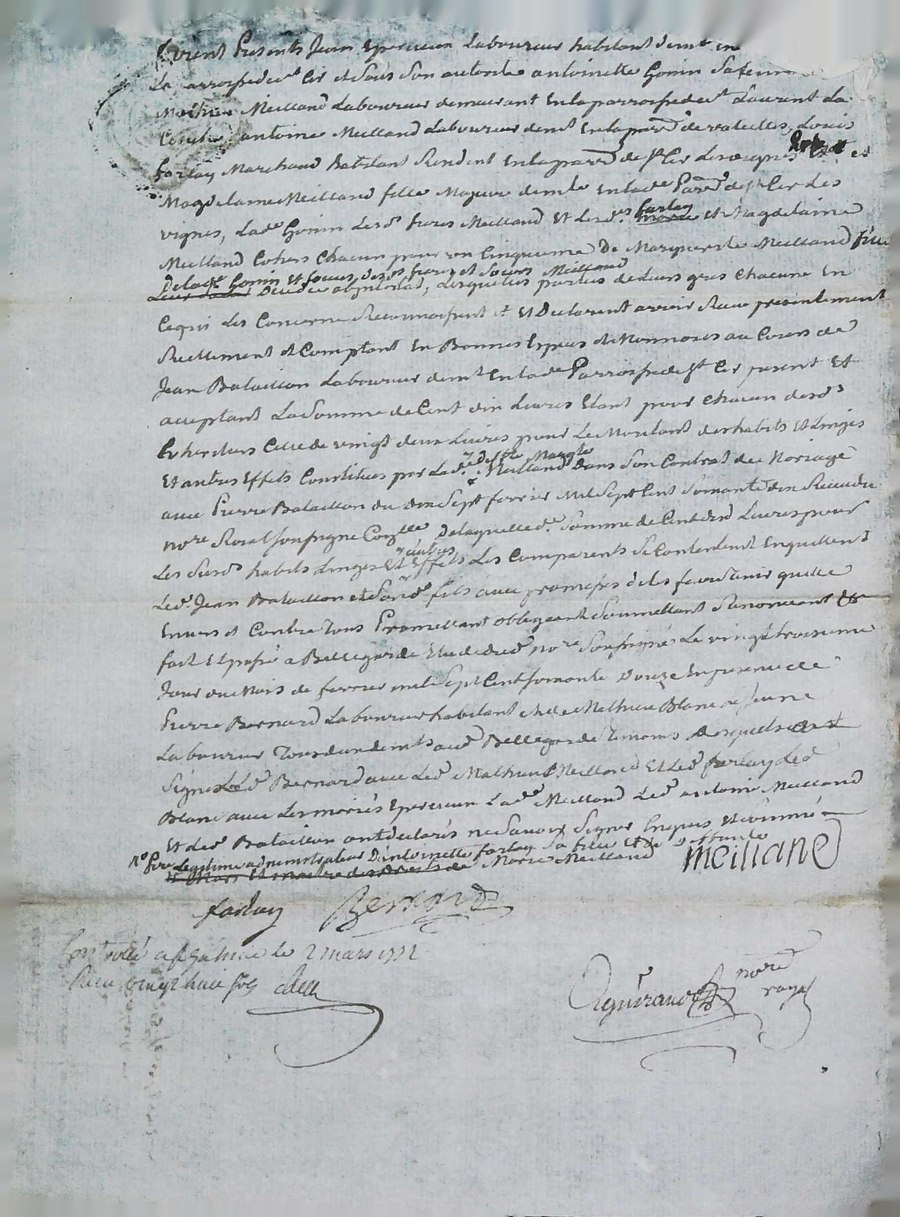 furent Presents Jean Epercieu Laboureur habitant demt en
La parroisse de st Cir et Sous Son autorite antoinette Gonin Sa femme
Mathieu Meilland Laboureur demeurant En la parroisse de st Laurent La
Conche antoine Meilland Laboureur demt En la parse de valeilles, Louis
farlay Marchand habitant Resident En la parse de st Cir Les vignes et
Magdelaine Meilland fille Majeure demte En lade Parse de st Cir Les
vignes, Lade Gonin Lesds freres Meilland Et Lesds farlay et Magdelaine
Meilland Cohers Chacun pour un Cinquieme De Marguerite Meilland fille
Delade Gonin Et soeur desds freres et Soeurs Meilland
Decedée abintestat, Lesquelles parties de Leurs gres Chacune En
Cequi Les Concerne Reconnoissent et Et Declarent avoir Recu presentement
Reellement et Comptant En Bonnes Especes de Monnoies au Cours de
Jean Bataillon Laboureur demt En lade Parroisse de st Cir present Et
acceptant La Somme de Cent dix Livres Etant pour Chacun desds
Coheritiers Celle de vingt deux Livres pour Le Montant des habits Et Linges
Et autres Effets Constitues par Lade Meilland dans Son Contrat de Mariage
avec Pierre Bataillon du dix Sept fevrier Mil Sept Cent Soixante dix Recu du
nore Royal Soussigne De laquelle de Somme de Cent dix Livres pour
Les Susds habits Linges Et autres Effets Les Comparants Se Contentent En quittent
Led Jean Bataillon et Sond fils avec promesses de Les faire tenir quitte
Envers et Contre Tous Promettant obligeant Soumettant Renonceant &
fait Et passé a Bellegarde Etude dud nore Soussigné Le vingt troisieme
Jour du Mois de fevrier mil Sept Cent soixante Douze En presence de
Pierre Bernard Laboureur habitant et de Mathieu Blanc Le Jeune
Laboureur Tous deux demts aud Bellegarde Temoins
Signes Led Bernard avec Led Mathieu Meilland Et Led farlay Led
Blanc avec Les mariés Epercieu Lade Meilland Led antoine Meilland
Et Led Bataillon ont declarés ne Savoir Signer Enquis Et Sommé
pere Legitime administrateur D'antoinette farlay Sa fille Et de
Marie Meilland
meilland
farlay Bernard
Contrôllé a st Galmier le 2 mars 1772
Recu vingt huit sols
nore
royal